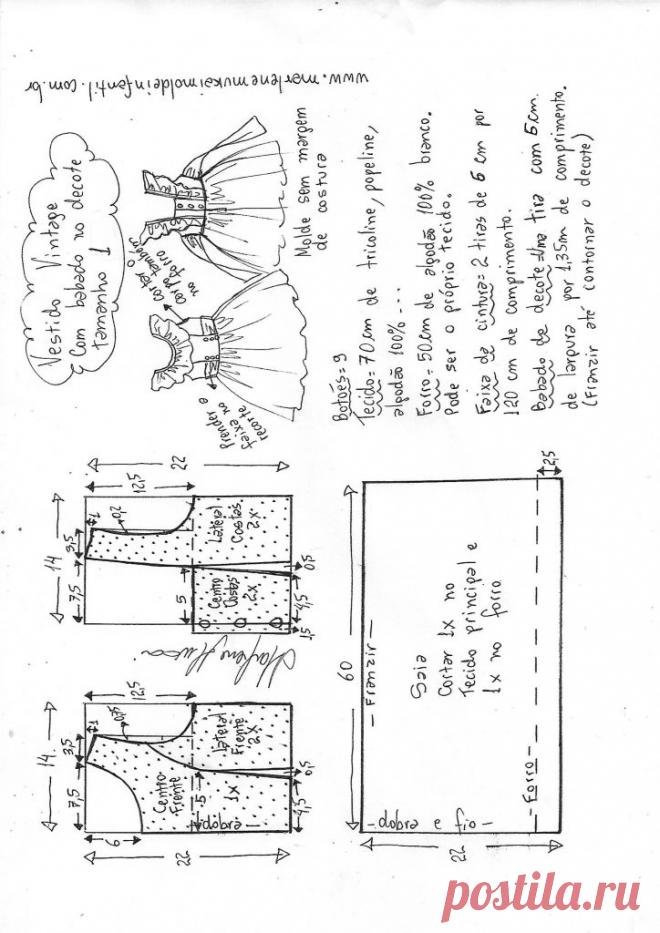 www.marlenemukaimoldeinfantil.com.br
Vestido Vintage
Com babado no decote
tamanho 1
Molde sem margem
de costura
cortar o
corpo também
no forro
Prender a
faixa no
recorte
Botões=9
Tecido=70cm de tricoline, popeline,
algodão 100%...
Forro=50cm de algodão 100% branco.
Pode ser o próprio tecido.
Faixa da cintura=2 tiras de 6 cm por
120 cm de comprimento.
Babado do decote=Uma tira com 5cm.
de largura por 1,35m de comprimento.
(Franzir até contornar o decote)
14
7,5
3,5
1
0,2
12,5
22
Lateral
Costas
2x
Centro
Costas
2x
5
1,5
4,5
0,5
Marlene Mukai
14
7,5
3,5
1
0,75
12,5
6
22
Centro
Frente
1x
Lateral
Frente
2x
dobra
5
4,5
0,5
60
22
2,5
-Franzir-
Saia
Cortar 1x no
Tecido principal e
1x no forro
-Forro-
-dobra e fio-
postila.ru